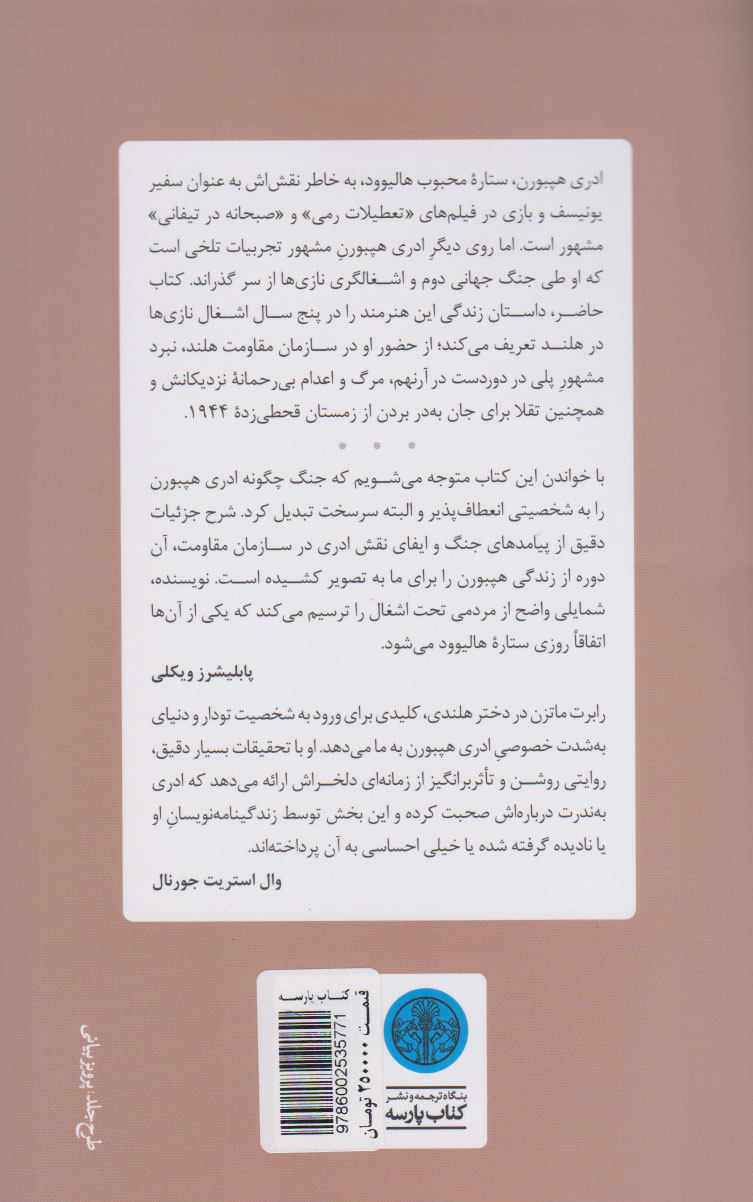 ادری هپبورن، ستارۀ محبوب هالیوود، به خاطر نقش‌اش به عنوان سفیر
یونیسف و بازی در فیلم‌های «تعطیلات رمی» و «صبحانه در تیفانی»
مشهور است. اما روی دیگرِ ادری هپبورنِ مشهور تجربیات تلخی است
که او طی جنگ جهانی دوم و اشغالگری نازی‌ها از سر گذراند. کتاب
حاضر، داستان زندگی این هنرمند را در پنج سال اشغال نازی‌ها
در هلند تعریف می‌کند؛ از حضور او در سازمان مقاومت هلند، نبرد
مشهورِ پلی در دوردست در آرنهم، مرگ و اعدام بی‌رحمانۀ نزدیکانش و
همچنین تقلا برای جان به‌در بردن از زمستان قحطی‌زدۀ ۱۹۴۴.
با خواندن این کتاب متوجه می‌شویم که جنگ چگونه ادری هپبورن
را به شخصیتی انعطاف‌پذیر و البته سرسخت تبدیل کرد. شرح جزئیات
دقیق از پیامدهای جنگ و ایفای نقش ادری در سازمان مقاومت، آن
دوره از زندگی هپبورن را برای ما به تصویر کشیده است. نویسنده،
شمایلی واضح از مردمی تحت اشغال را ترسیم می‌کند که یکی از آن‌ها
اتفاقاً روزی ستارۀ هالیوود می‌شود.
پابلیشرز ویکلی
رابرت ماتزن در دختر هلندی، کلیدی برای ورود به شخصیت تودار و دنیای
به‌شدت خصوصیِ ادری هپبورن به ما می‌دهد. او با تحقیقات بسیار دقیق،
روایتی روشن و تأثربرانگیز از زمانه‌ای دلخراش ارائه می‌دهد که ادری
به‌ندرت درباره‌اش صحبت کرده و این بخش توسط زندگینامه‌نویسانِ او
یا نادیده گرفته شده یا خیلی احساسی به آن پرداخته‌اند.
وال استریت جورنال
کتاب پارسه
9786002535771
قیمت ۲۵۰۰۰۰ تومان
بنگاه ترجمه و نشر
کتاب پارسه
طرح جلد: پرویز بیانی